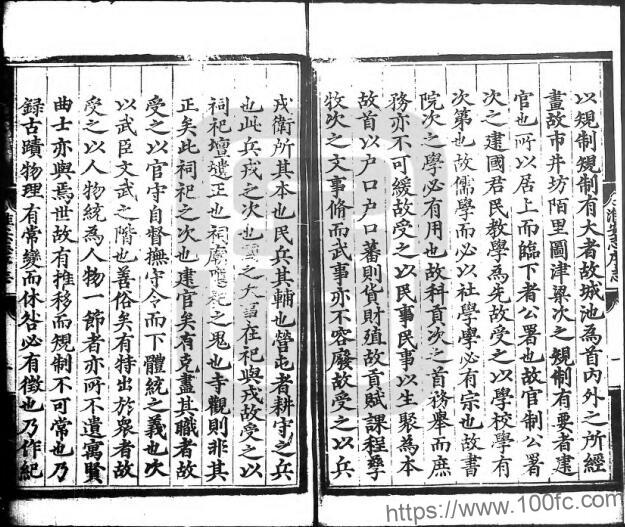 以規制規制有大者故城池為首內外之所經
畫故市井坊陌里圖津梁次之規制有要者建
官也所以居上而臨下者公署也故官制公署
次之建國君民教學為先故受之以學校學有
次第也故儒學而必以社學學必有宗也故書
院次之學必有用也故科貢次之首務舉而庶
務亦不可緩故受之以民事民事以生聚為本
故首以户口户口蕃則貨財殖故貢賦課程孳
牧次之文事脩而武事亦不容廢故受之以兵
戎衛所其本也民兵其輔也營屯者耕守之兵
也此兵戎之次也國之大事在祀與戎故受之以
祠祀壇壝正也祠廟應祀之鬼也寺觀則非其
正矣此祠祀之次也建官矣有克盡其職者故
受之以官守自督撫守令而下體統之義也次
以武臣文武之階也善俗矣有特出於眾者故
受之以人物統為人物一節者亦所不遺寓賢
曲士亦與焉世故有推移而規制不可常也乃
錄古蹟物理有常變而休咎必有徵也乃作紀
https://www.100fc.com